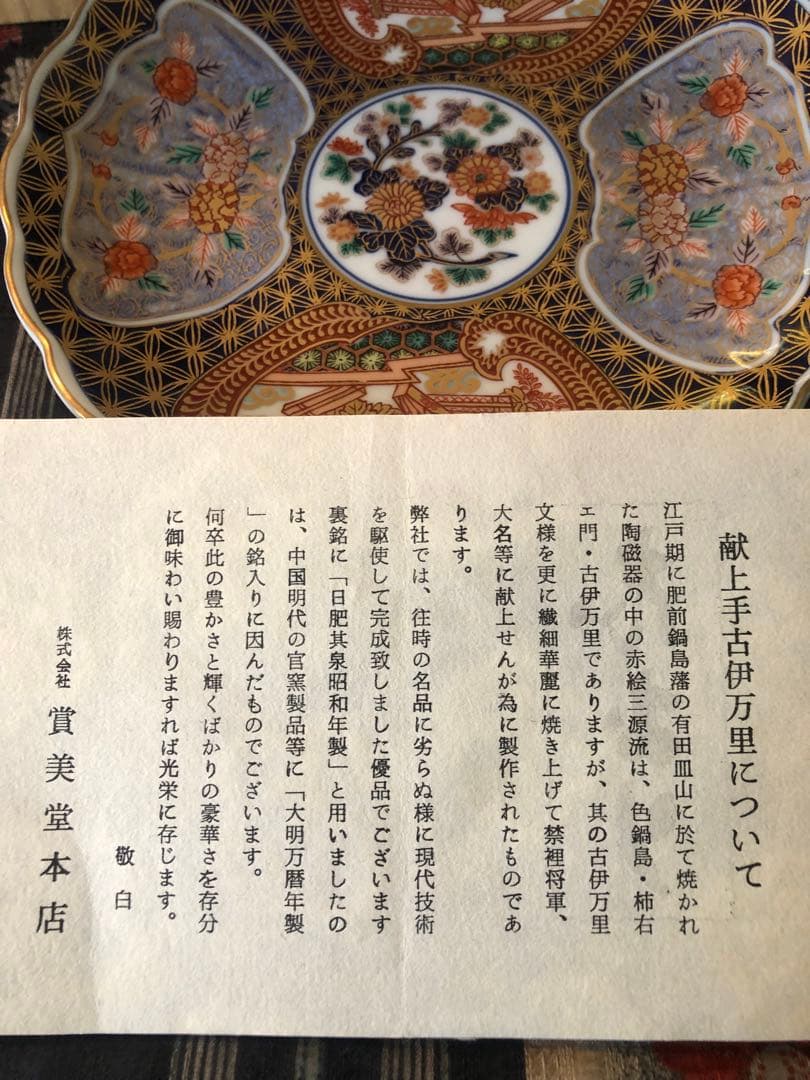 献上手古伊万里について
江戸期に肥前鍋島藩の有田皿山に於て焼かれ
た陶磁器の中の赤絵三源流は、色鍋島・柿右
ェ門・古伊万里でありますが、其の古伊万里
文様を更に繊細華麗に焼き上げて禁裡将軍、
大名等に献上せんが為に製作されたものであ
ります。
弊社では、往時の名品に劣らぬ様に現代技術
を駆使して完成致しました優品でございます
裏銘に「日肥其泉昭和年製」と用いましたの
は、中国明代の官窯製品等に「大明万暦年製
」の銘入りに因んだものでございます。
何卒此の豊かさと輝くばかりの豪華さを存分
に御味わい賜わりますれば光栄に存じます。
敬白
株式会社 賞美堂本店